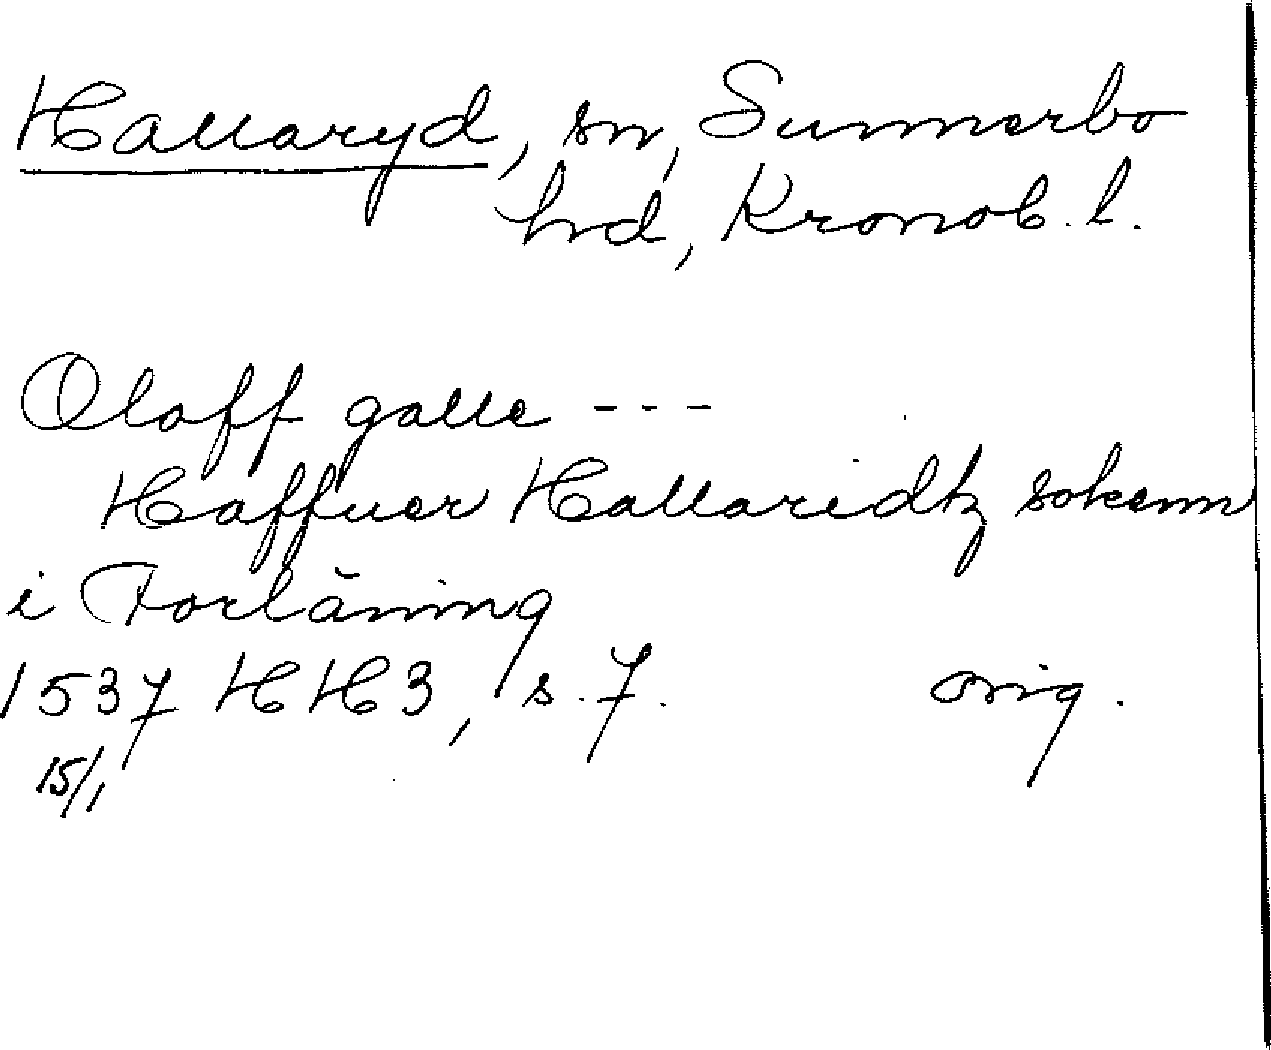 Hallaryd, sn, Sunnerbo
hd, Kronob. l.
Oloff galle ---
Haffuer Hallaridtz sokenn
i Forläning
1537 HH3, s. 7. orig.
15/1